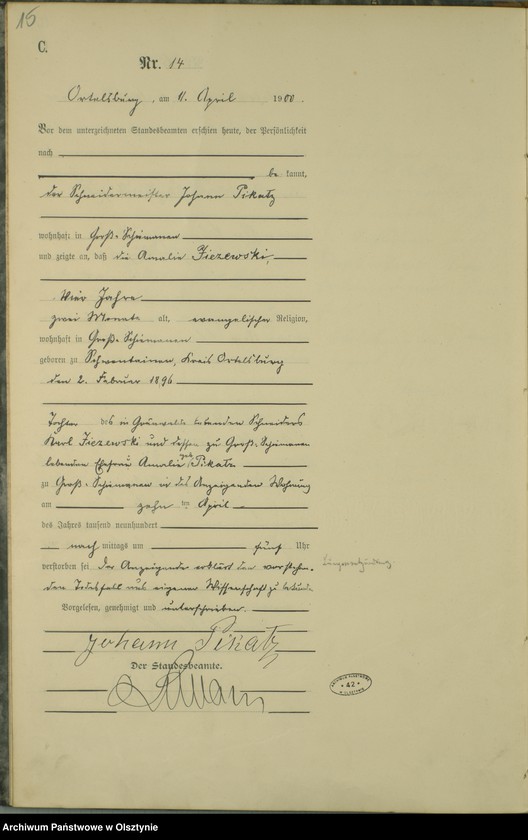 15
C.
Nr. 14
Ortelsburg, am 11. April 1900.
Vor dem unterzeichneten Standesbeamten erschien heute, der Persönlichkeit
nach
be kannt,
der Schneidermeister Johann Pikatz
wohnhaft in Groß-Schiemanen
und zeigte an, daß die Amalie Jiezewski,
Vier Jahre
zwei Monate alt, evangelischer Religion,
wohnhaft in Groß-Schiemanen
geboren zu Schwentainen, Kreis Ortelsburg
den 2. Februar 1896
Tochter des in Grünwalde lebenden Schneiders
Karl Jiezewski und dessen zu Groß-Schiemanen
lebenden Ehefrau Amalie geb. Pikatz
zu Groß-Schiemanen in des Anzeigenden Wohnung
am zehn ten April
des Jahres tausend neunhundert
nach mittags um fünf Uhr
verstorben sei. Der Anzeigende erklärt den vorstehen-
den Todesfall aus eigener Wissenschaft zu bekunden.
Vorgelesen, genehmigt und unterschrieben.
Johann Pikatz
Der Standesbeamte.
42
Archiwum Państwowe w Olsztynie